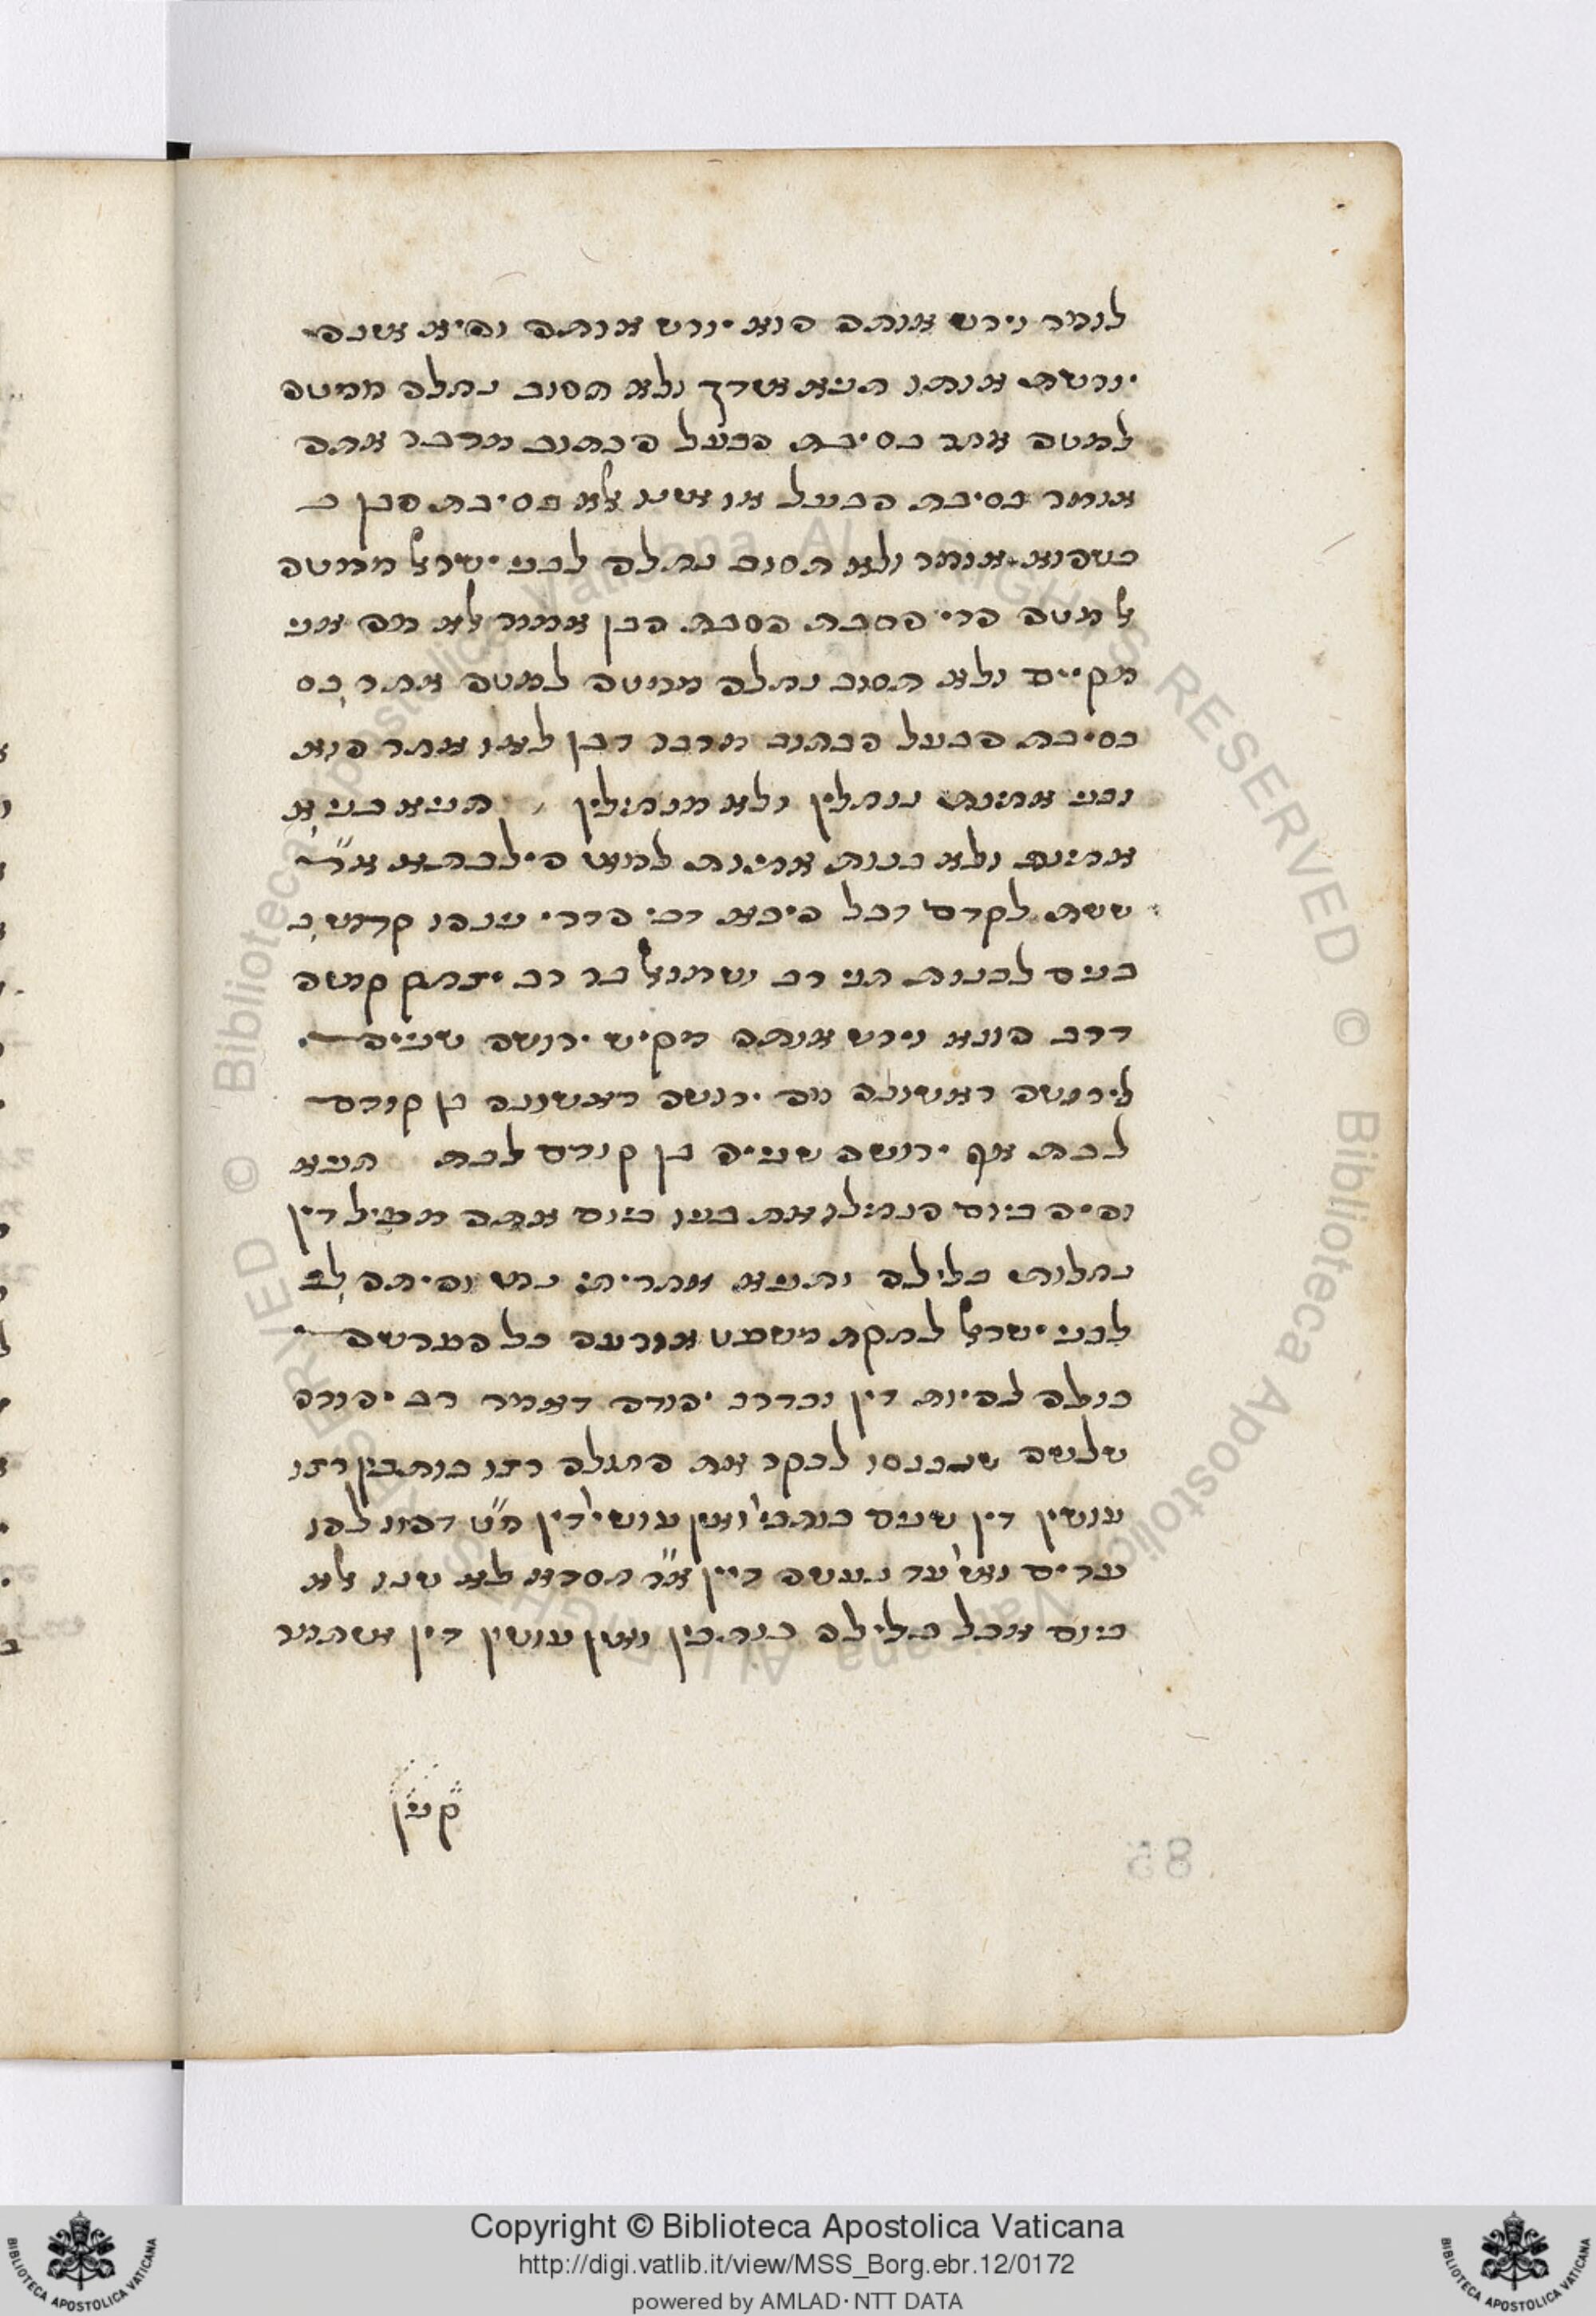 לומר וירש אותה הוא יורש אותה והיא אינה
יורשת אותו תניא אידך ולא תסוב נחלה ממטה
למטה אחר בסיבת הבעל הכתוב מדבר אתה
אומר בסיבת הבעל או אינו אלא בסיבת הבן כ
כשהוא אומר ולא תסוב נחלה לבני ישראל ממטה
אל מטה הרי הסבת הסבת הבן אמור אלא מה אני
מקיים ולא תסוב נחלה ממטה למטה אחר בס
בסיבת הבעל הכתוב מדבר דבן לאו אחר הוא
ובני אחיות נוחלין ולא מנחילין תנא בני א
אחיות ולא בנות אחיות למאי הילכתא א״ר
ששת לקדם דבל היכא דכי הדדי נינהו קדמי ב
בנים לבנות תני רב שמואל בר רב יצחק קמיה
דרב הונא וירש אותה מקיש ירושה שנייה
לירושה ראשונה מה ירושה ראשונה בן קודם
לבת אף ירושה שנייה בן קודם לבת תניא
והיה ביום הנחילו את בניו ביום אתה מפיל דין
נחלות בלילה ותניא אחריתי נמי והיתה לב
לבני ישראל לחקת משפט אורעה כל הפרשה
כולה להיות דין וכדרב יהודה דאמר רב יהודה
שלשה שנכנסו לבקר את החולה רצו כותבין רצו
עושין דין שנים כותבי׳ ואין עושי׳ דין מ״ט דהוו להו
עדים ואי׳ עד נעשה דיין א״ר חסדא לא שנו אלא
ביום אבל בלילה כותבין ואין עושין דין אשתמ
Copyright © Biblioteca Apostolica Vaticana
http://digi.vatlib.it/view/MSS_Borg.ebr.12/0172
powered by AMLAD · NTT DATA